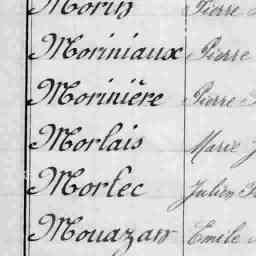 Morin Pierre
Moriniaux Pierre
Morinière Pierre
Morlais Marie
Morlec Julien
Mouazan Émile